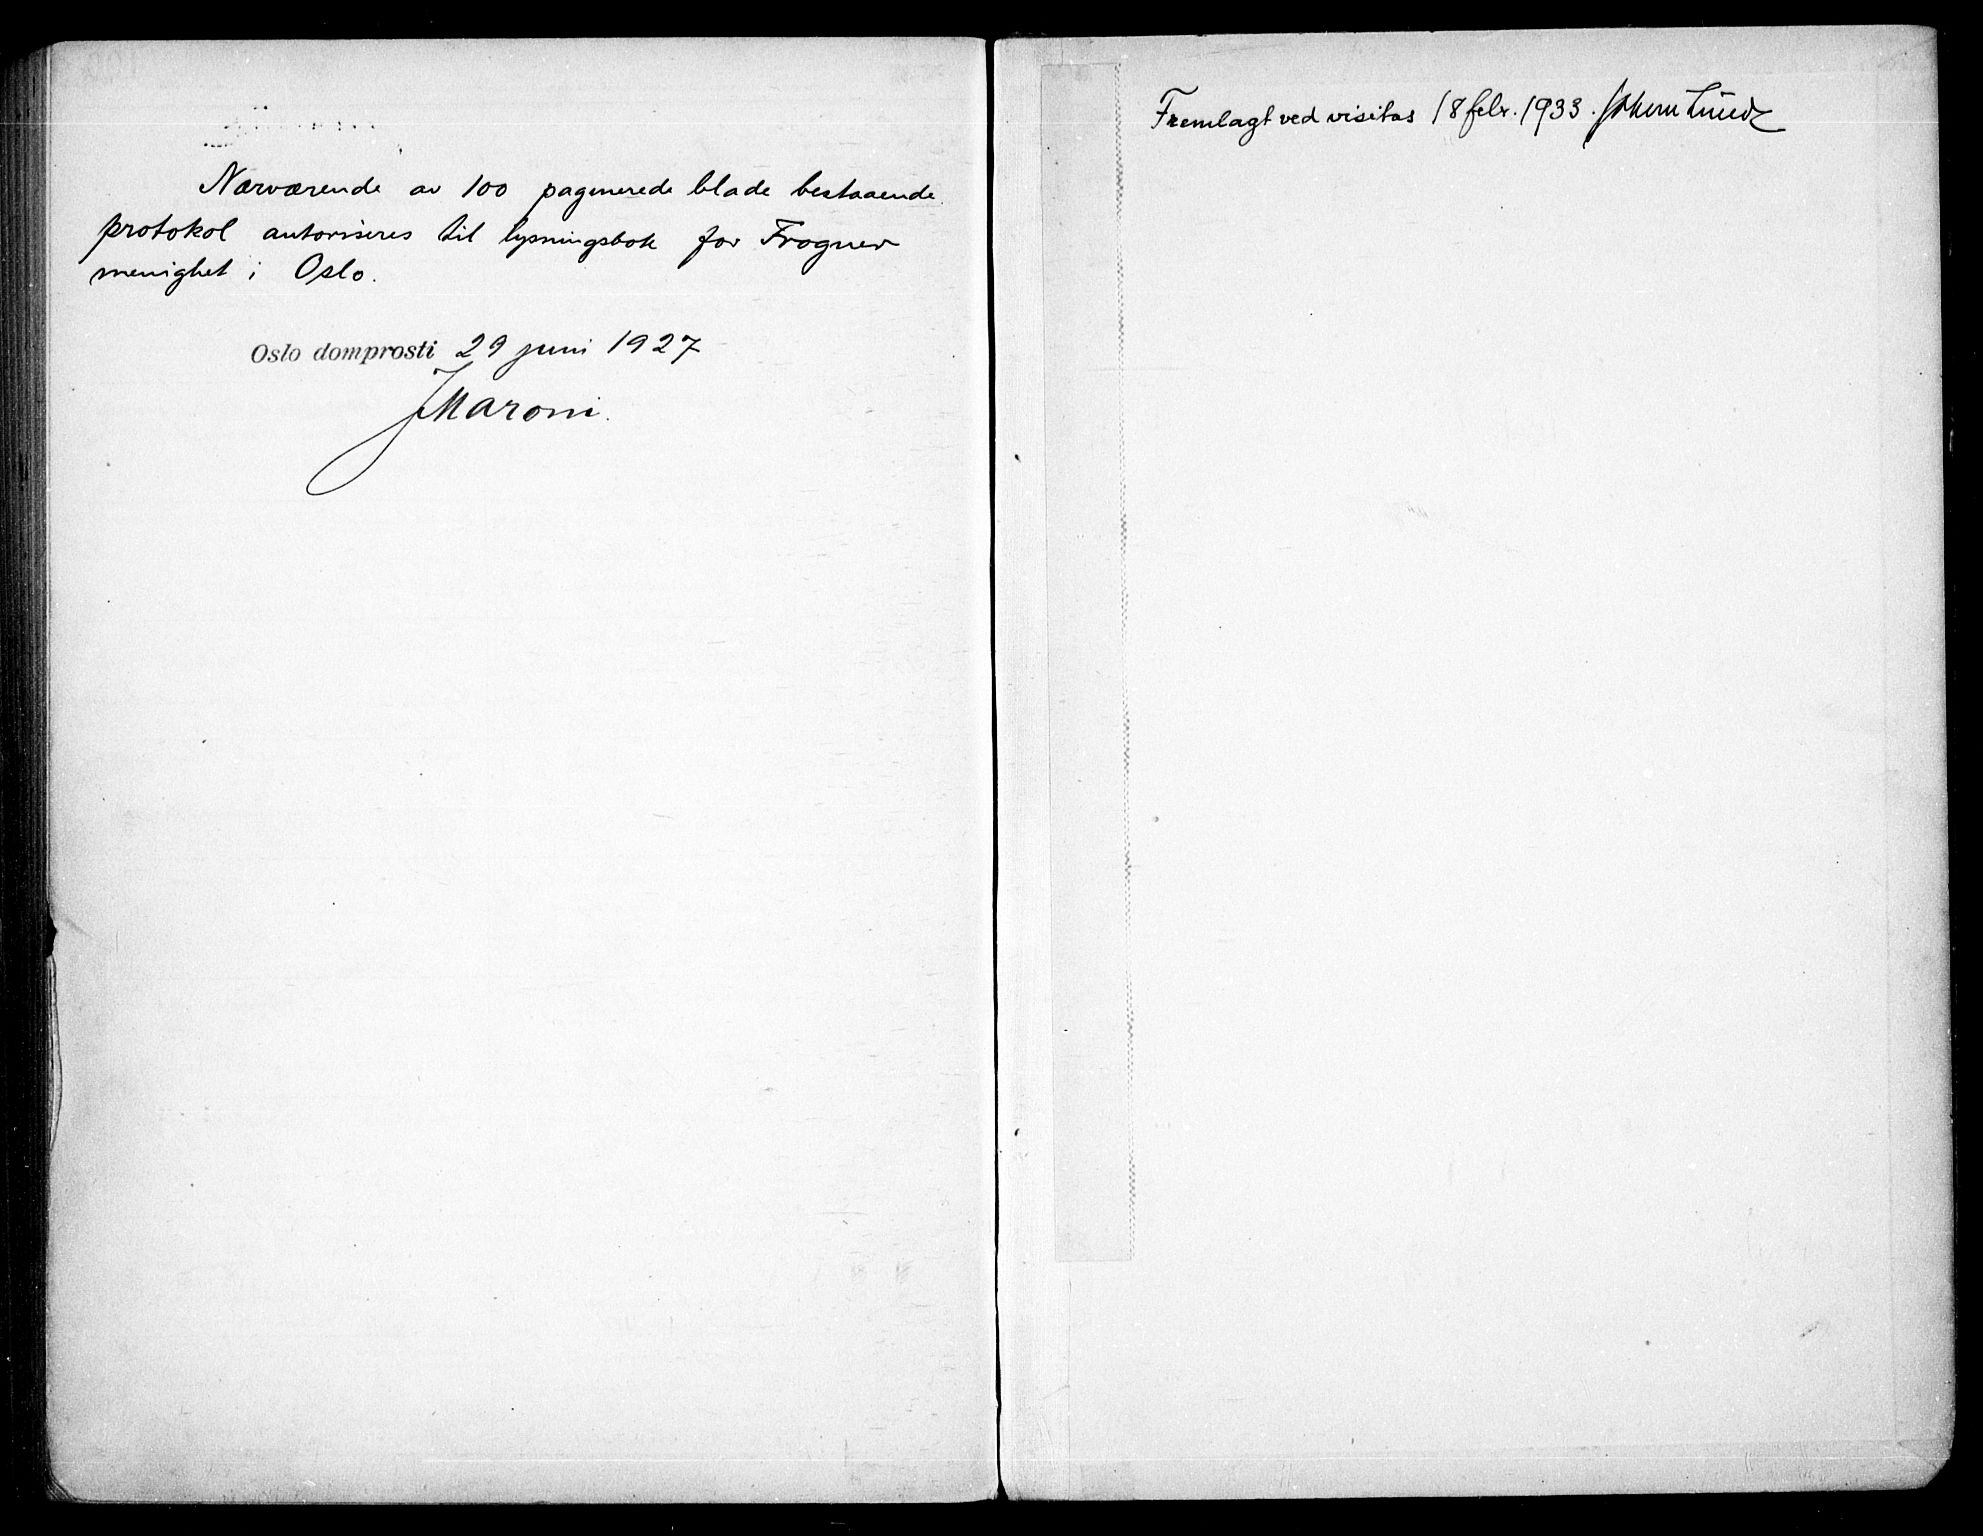 Nærværende av 100 paginerede blade bestaaende
protokol autoriseres til lysningsbok for Frogner
menighet i Oslo.
Oslo domprosti 29 juni 1927
J Maroni.
Fremlagt ved visitas 18 febr. 1933. Johan Lunde